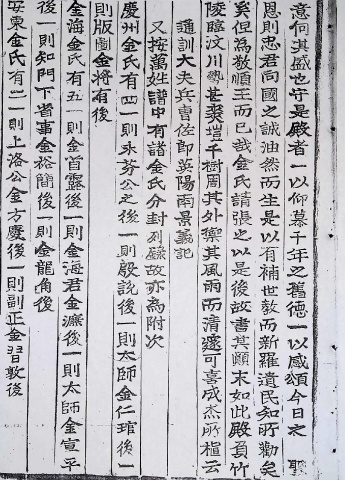 意何其盛也守是殿者一以仰慕千年之舊德一以感頌今日之 聖
恩則忠君向國之誠油然而生是以有補世敎而新羅遺民知所勸矣
奚但爲敬順王而已哉金氏請張之以是後故書其顚末如此殿負竹
陵臨汶川勢甚爽塏千樹周其外禦其風雨而淸邃可喜成杰所植云
通訓大夫兵曹佐郎英陽南景羲記
又按萬姓譜中有諸金氏分封列錄故亦爲附次
慶州金氏有四一則永芬公之後一則殷說後一則太師金仁琯後一
則版圖金將有後
金海金氏有五一則金首露後一則金海君金濂後一則太師金宣平
後一則知門下省事金裕簡後一則金龍角後
安東金氏有二一則上洛公金方慶後一則副正金習敦後